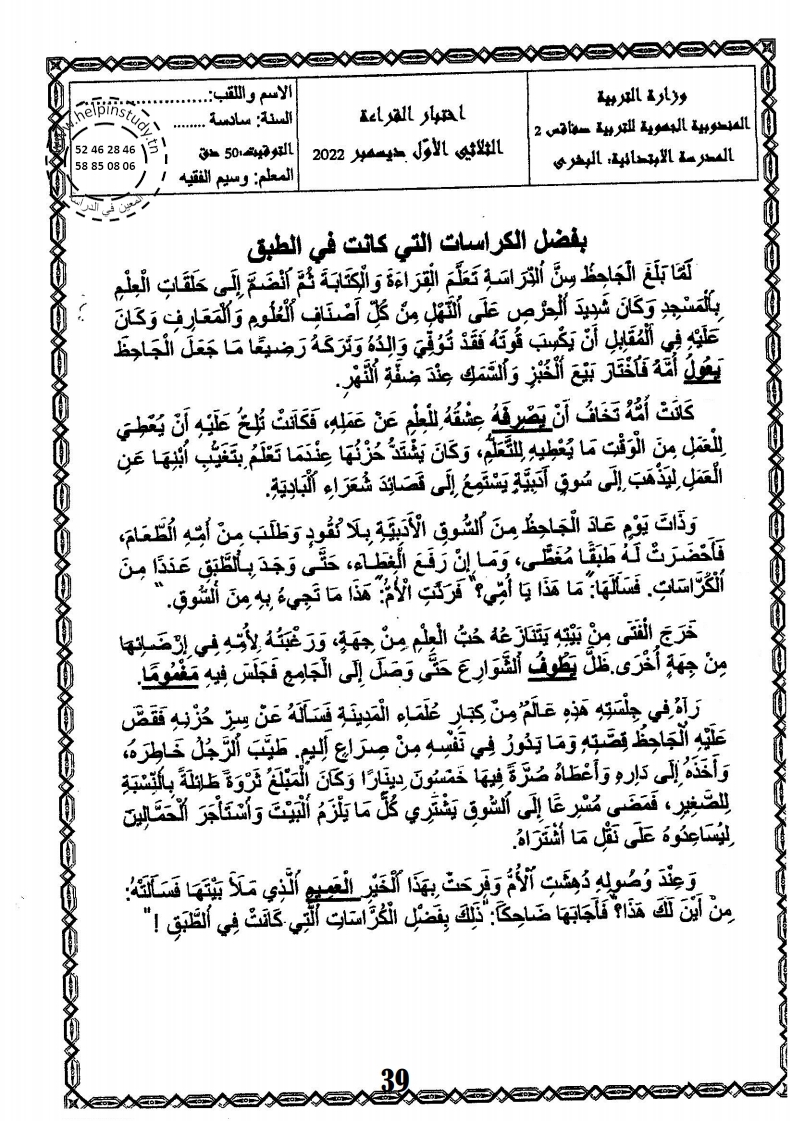 وزارة التربية
المندوبية الجهوية للتربية صفاقس 2
المدرسة الابتدائية: البشرى
اختبار القراءة
الثلاثي الأوّل ديسمبر 2022
الاسم واللقب:......................
السنة: سادسة ........
التوقيت:50 دق
المعلم: وسيم الفقيه
www.helpinstudy.tn
52 46 28 46
58 85 08 06
المعين في الدراسة
بفضل الكراسات التي كانت في الطبق
لَمَّا بَلَغَ الْجَاحِظُ سِنَّ الدِّرَاسَةِ تَعَلَّمَ الْقِرَاءَةَ وَالْكِتَابَةَ ثُمَّ انْضَمَّ إِلَى حَلَقَاتِ الْعِلْمِ
بِالْمَسْجِدِ وَكَانَ شَدِيدَ الْحِرْصِ عَلَى النَّهْلِ مِنْ كُلِّ أَصْنَافِ الْعُلُومِ وَالْمَعَارِفِ وَكَانَ
عَلَيْهِ فِي الْمُقَابِلِ أَنْ يَكْسِبَ قُوتَهُ فَقَدْ تُوُفِّيَ وَالِدُهُ وَتَرَكَهُ رَضِيعًا مَا جَعَلَ الْجَاحِظَ
يَعُولُ أُمَّهُ فَاخْتَارَ بَيْعَ الْخُبْزِ وَالسَّمَكِ عِنْدَ ضِفَّةِ النَّهْرِ.
كَانَتْ أُمُّهُ تَخَافُ أَنْ يَصْرِفَهُ عِشْقُهُ لِلْعِلْمِ عَنْ عَمَلِهِ، فَكَانَتْ تُلِحُّ عَلَيْهِ أَنْ يُعْطِيَ
لِلْعَمَلِ مِنَ الْوَقْتِ مَا يُعْطِيهِ لِلتَّعَلُّمِ، وَكَانَ يَشْتَدُّ حُزْنُهَا عِنْدَمَا تَعْلَمُ بِتَغَيُّبِ ابْنِهَا عَنِ
الْعَمَلِ لِيَذْهَبَ إِلَى سُوقٍ أَدَبِيَّةٍ يَسْتَمِعُ إِلَى قَصَائِدِ شُعَرَاءِ الْبَادِيَةِ.
وَذَاتَ يَوْمٍ عَادَ الْجَاحِظُ مِنَ السُّوقِ الْأَدَبِيَّةِ بِلَا نُقُودٍ وَطَلَبَ مِنْ أُمِّهِ الطَّعَامَ،
فَأَحْضَرَتْ لَهُ طَبَقًا مُغَطًّى، وَمَا إِنْ رَفَعَ الْغِطَاءَ، حَتَّى وَجَدَ بِالطَّبَقِ عَدَدًا مِنَ
الْكُرَّاسَاتِ. فَسَأَلَهَا:"مَا هَذَا يَا أُمِّي؟" فَرَدَّتِ الْأُمُّ:"هَذَا مَا تَجِيءُ بِهِ مِنَ السُّوقِ."
خَرَجَ الْفَتَى مِنْ بَيْتِهِ يَتَنَازَعُهُ حُبُّ الْعِلْمِ مِنْ جِهَةٍ، وَرَغْبَتُهُ لِأُمِّهِ فِي إِرْضَائِهَا
مِنْ جِهَةٍ أُخْرَى.ظَلَّ يَطُوفُ الشَّوَارِعَ حَتَّى وَصَلَ إِلَى الْجَامِعِ فَجَلَسَ فِيهِ مَغْمُومًا.
رَآهُ فِي جِلْسَتِهِ هَذِهِ عَالَمٌ مِنْ كِبَارِ عُلَمَاءِ الْمَدِينَةِ فَسَأَلَهُ عَنْ سِرِّ حُزْنِهِ فَقَصَّ
عَلَيْهِ الْجَاحِظُ قِصَّتَهُ وَمَا يَدُورُ فِي نَفْسِهِ مِنْ صِرَاعٍ أَلِيمٍ. طَيَّبَ الرَّجُلُ خَاطِرَهُ،
وَأَخَذَهُ إِلَى دَارِهِ وَأَعْطَاهُ صُرَّةً فِيهَا خَمْسُونَ دِينَارًا وَكَانَ الْمَبْلَغُ ثَرْوَةً طَائِلَةً بِالنِّسْبَةِ
لِلصَّغِيرِ، فَمَضَى مُسْرِعًا إِلَى السُّوقِ يَشْتَرِي كُلَّ مَا يَلْزَمُ الْبَيْتَ وَاسْتَأْجَرَ الْحَمَّالِينَ
لِيُسَاعِدُوهُ عَلَى نَقْلِ مَا اشْتَرَاهُ.
وَعِنْدَ وُصُولِهِ دُهِشَتِ الْأُمُّ وَفَرِحَتْ بِهَذَا الْخَيْرِ الْعَمِيمِ الَّذِي مَلَأَ بَيْتَهَا فَسَأَلَتْهُ:
مِنْ أَيْنَ لَكَ هَذَا؟" فَأَجَابَهَا ضَاحِكًا:"ذَلِكَ بِفَضْلِ الْكُرَّاسَاتِ الَّتِي كَانَتْ فِي الطَّبَقِ !"
39